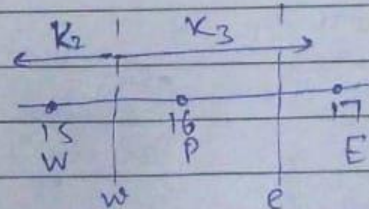 K2 K3
15 16 17
W P E
w e